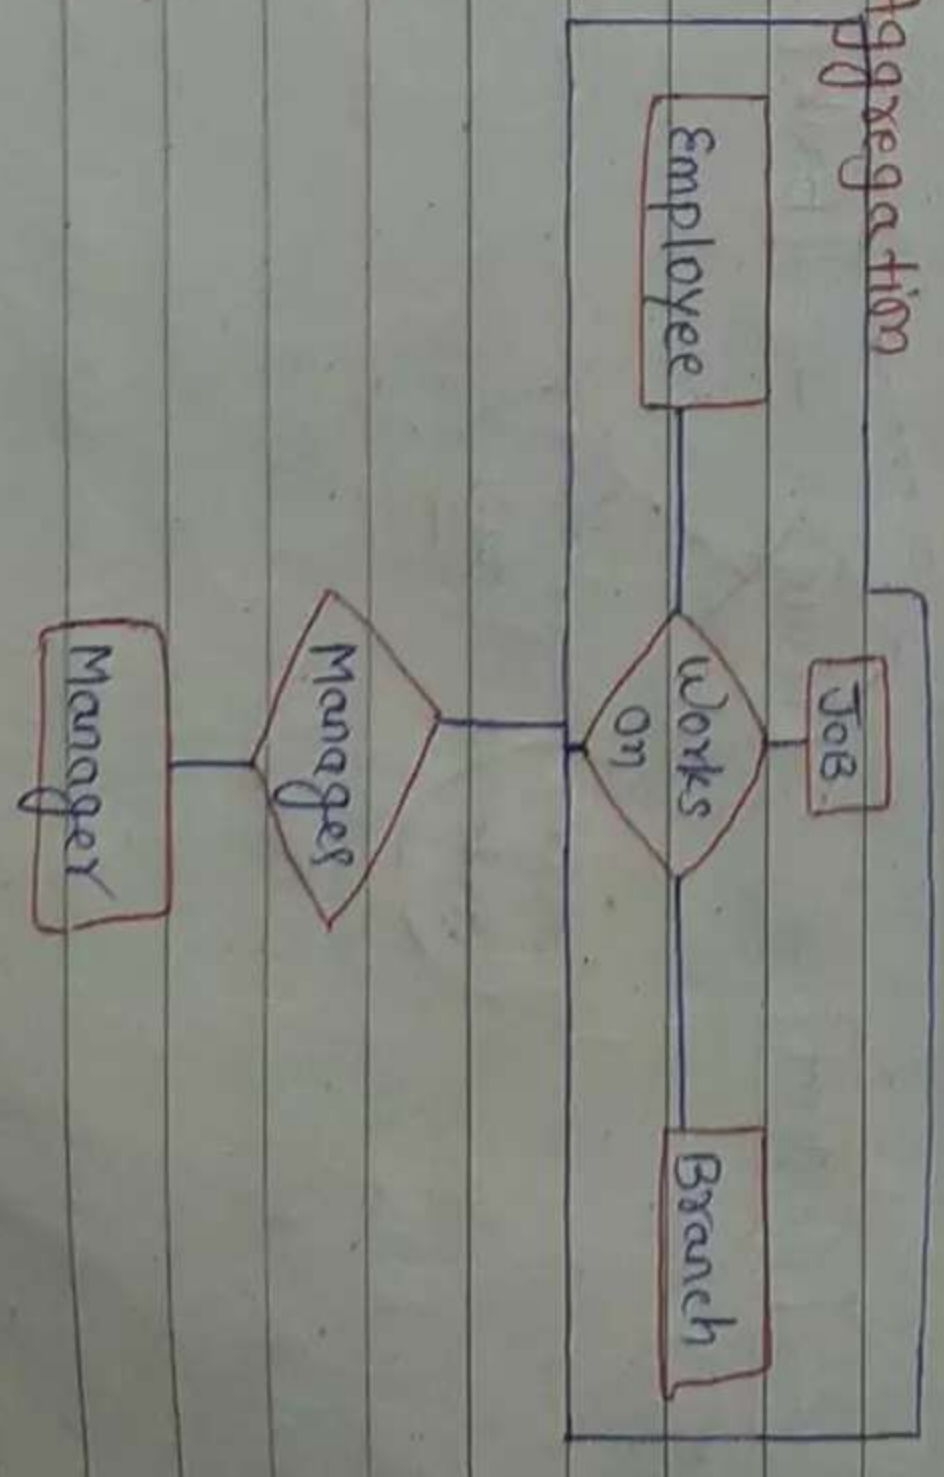 Aggregation
JoB.
Employee
Works
on
Branch
Manages
Manager